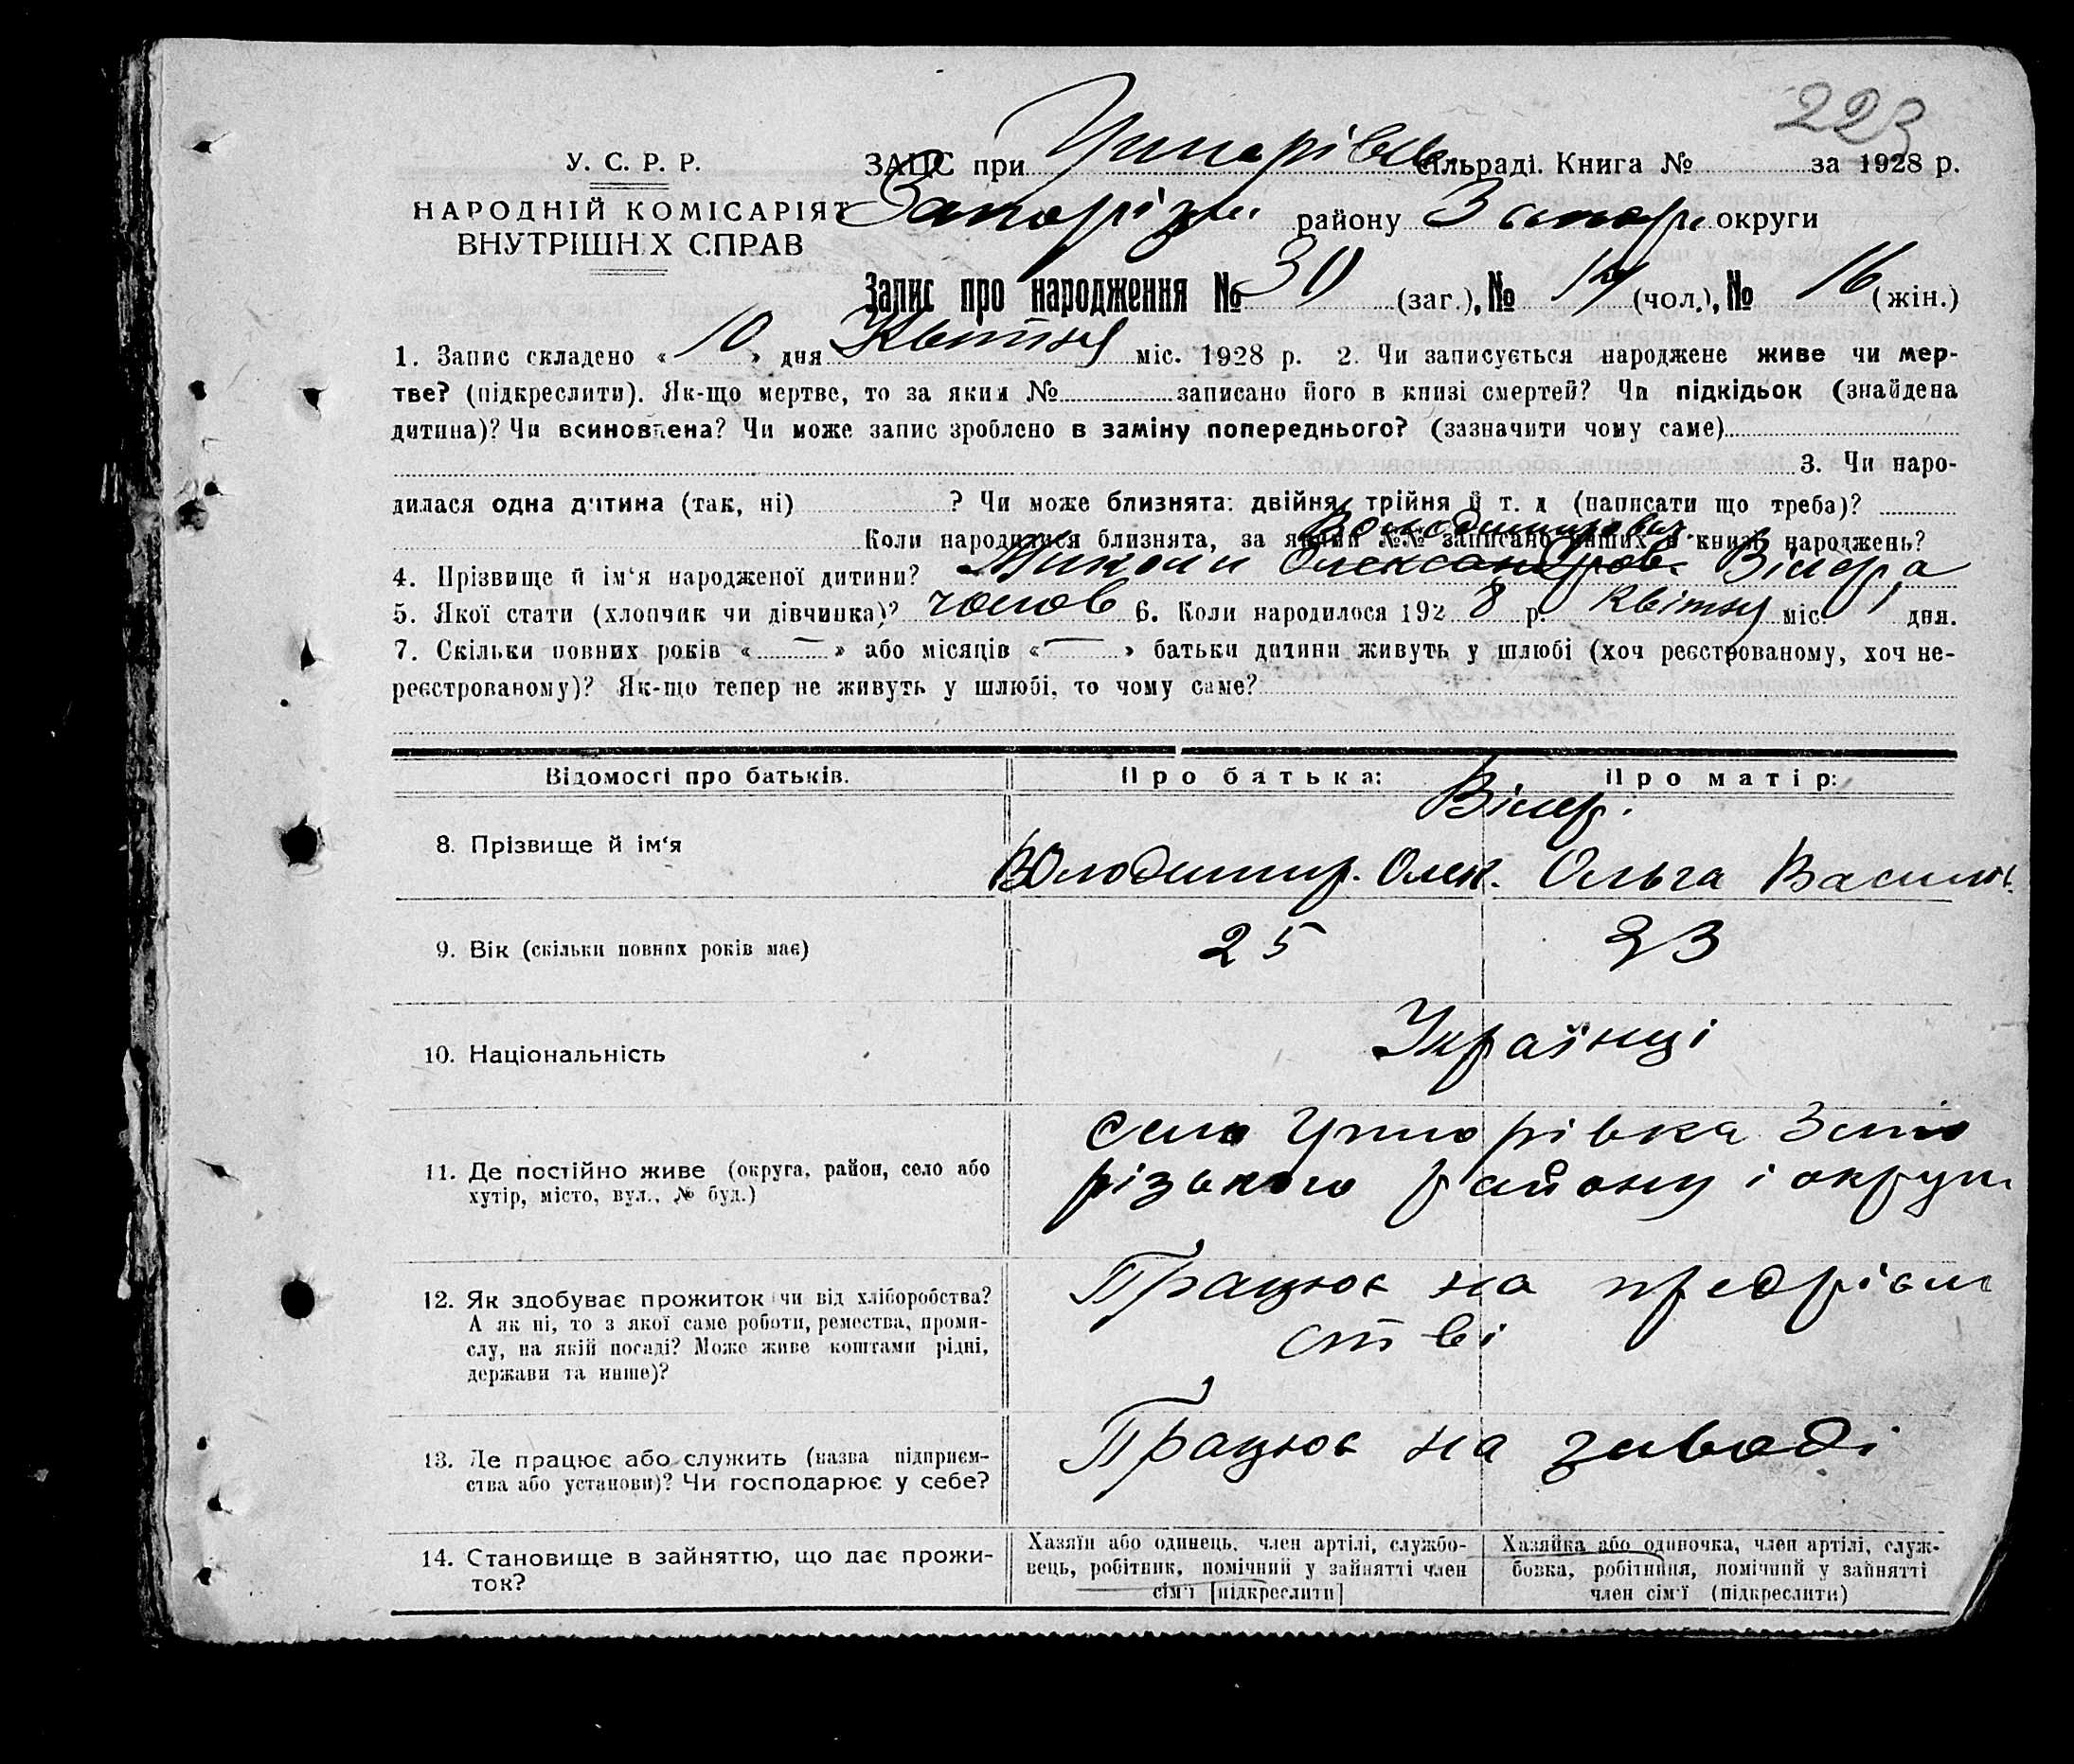 223
У. С. Р. Р.
НАРОДНІЙ КОМІСАРІЯТ
ВНУТРІШНІХ СПРАВ
ЗАГС при сільраді. Книга № за 1928 р.
Запорізьк. району Запор. округи
Запис про народження № 30 (заг.), № 14 (чол.), № 16 (жін.)
1. Запис складено « 10 » дня Квітня міс. 1928 р. 2. Чи записується народжене живе чи мер-
тве? (підкреслити). Як-що мертве, то за яким № записано його в книзі смертей? Чи підкідьок (знайдена
дитина)? Чи всиновлена? Чи може запис зроблено в заміну попереднього? (зазначити чому саме)
3. Чи наро-
дилася одна дитина (так, ні) ? Чи може близнята: двійня, трійня й т. д (написати що треба)?
Коли народилися близнята, за якими №№ записано инших в книзі народжень?
Володимирович
4. Прізвище й ім‘я народженої дитини? Микола Олександров. Вілера
5. Якої стати (хлопчик чи дівчинка)? чолов 6. Коли народилося 1928 р. Квітня міс. 1 дня.
7. Скільки повних років « — » або місяців « — » батьки дитини живуть у шлюбі (хоч реєстрованому, хоч не-
реєстрованому)? Як-що тепер не живуть у шлюбі, то чому саме?
Відомості про батьків. Про батька: Про матір:
Вілер.
8. Прізвище й ім‘я Володимир. Олек. Ольга Василів.
9. Вік (скільки повних років має) 25 23
10. Національність Українці
11. Де постійно живе (округа, район, село або
хутір, місто, вул., № буд.)
село Запо
різького району і округи
12. Як здобуває прожиток чи від хліборобства?
А як ні, то з якої саме роботи, ремества, проми-
слу, на якій посаді? Може живе коштами рідні,
держави та инше)?
Працює на предрієм
стві
13. Де працює або служить (назва підприєм-
ства або установи)? Чи господарює у себе?
Працює на заводі
14. Становище в зайняттю, що дає прожи-
ток?
Хазяїн або одинець, член артілі, службо-
вець, робітник, помічний у зайнятті член
сім‘ї [підкреслити]
Хазяйка або одиночка, член артілі, служ-
бовка, робітниця, помічний у зайнятті
член сім‘ї (підкреслити)